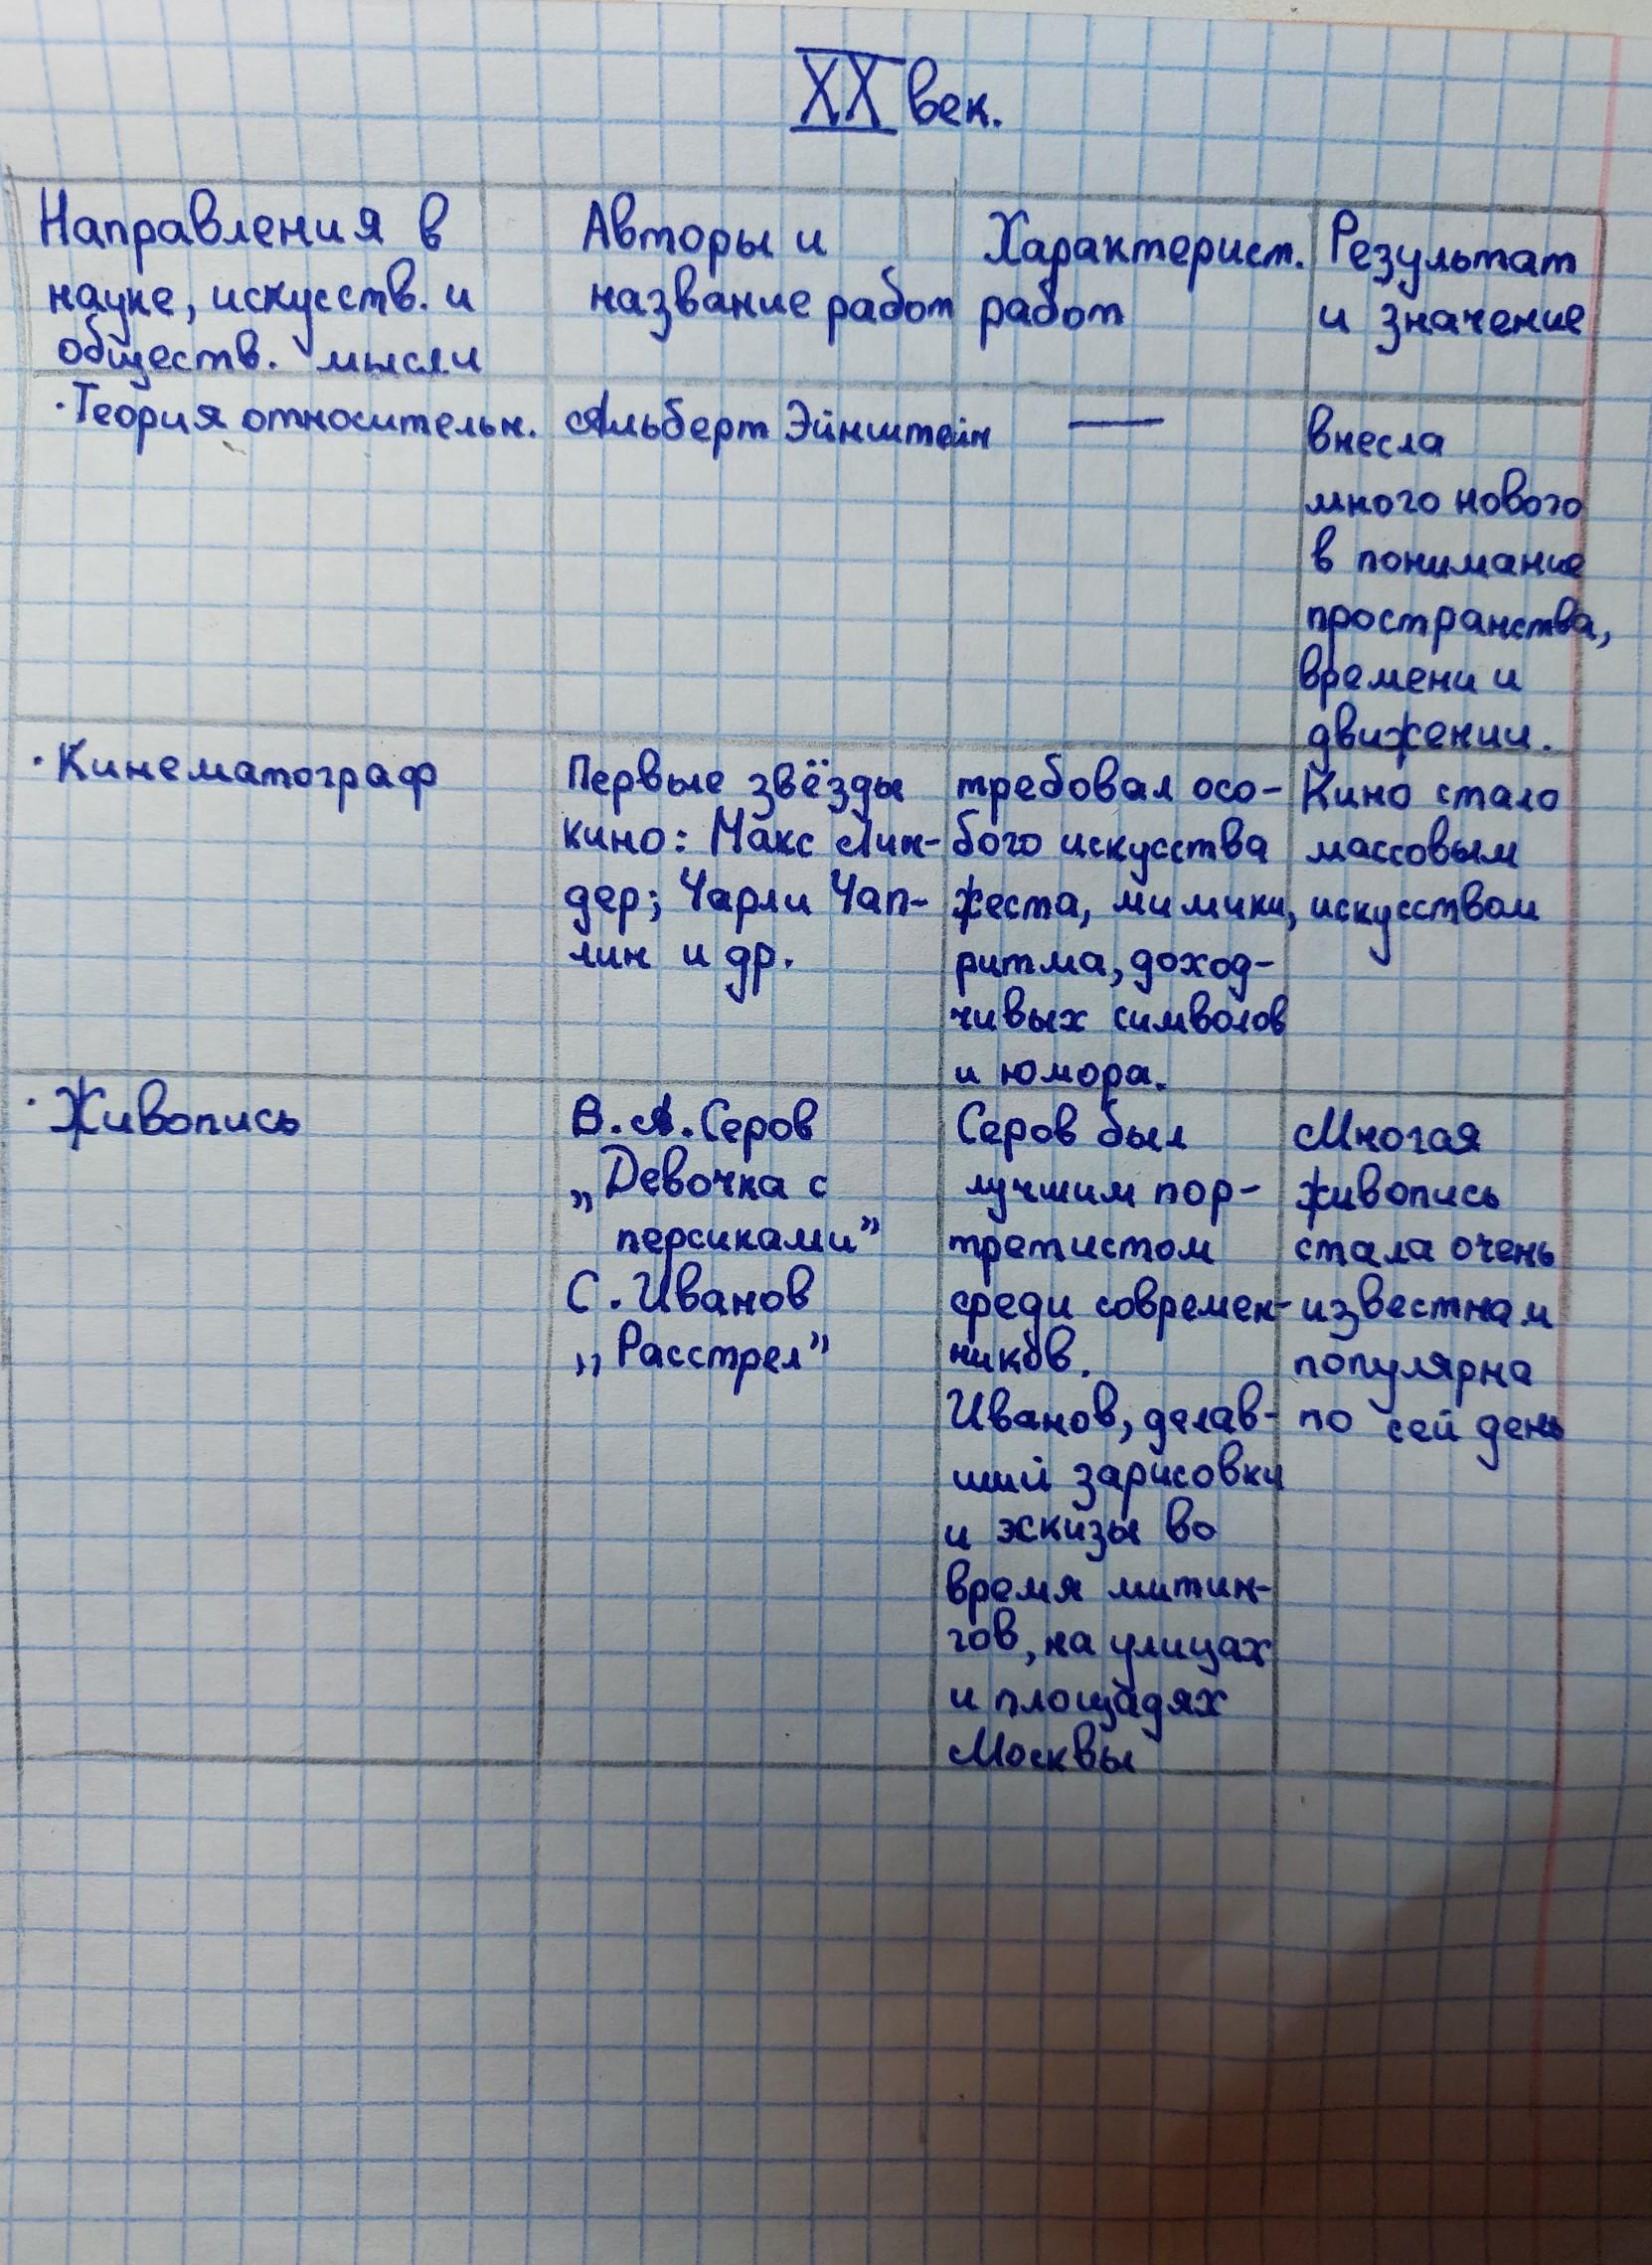 XX век.
Направления в
науке, искусств. и
обществ. мысли
Авторы и
название работ
Характерист.
работ
Результат
и значение
·Теория относительн.
Альберт Эйнштейн
—
внесла
много нового
в понимание
пространства,
времени и
движении.
·Кинематограф
Первые звёзды
кино: Макс Лин-
дер; Чарли Чап-
лин и др.
требовал осо-
бого искусства
жеста, мимики,
ритма, доход-
чивых символов
и юмора.
Кино стало
массовым
искусством
·Живопись
В.А.Серов
„Девочка с
персиками”
С.Иванов
„Расстрел”
Серов был
лучшим пор-
третистом
среди современ-
ников.
Иванов, делав-
ший зарисовки
и эскизы во
время митин-
гов, на улицах
и площадях
Москвы
Многая
живопись
стала очень
известна и
популярна
по сей день